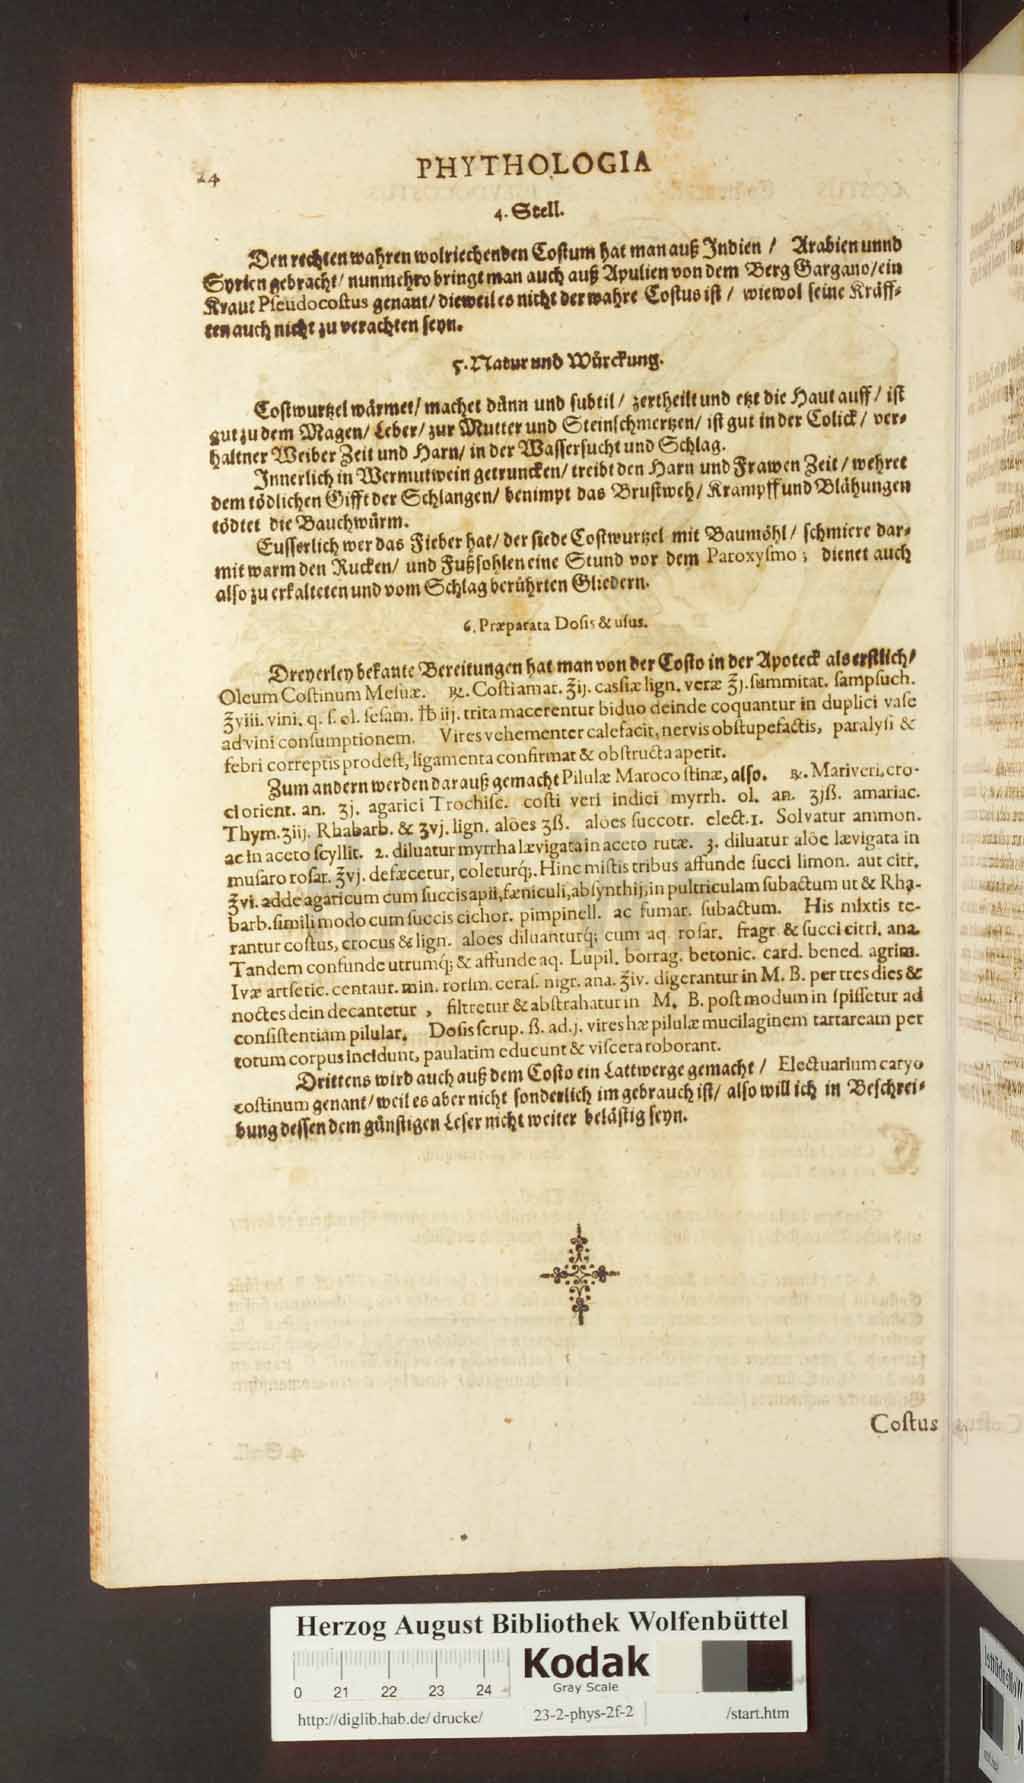 24
PHYTHOLOGIA
4. Stell.
Den rechten wahren wolriechenden Costum hat man auß Indien / Arabien unnd
Syrien gebracht / nunmehro bringt man auch auß Apulien von dem Berg Gargano / ein
Kraut Pſeudocoſtus genant / dieweil es nicht der wahre Coſtus iſt / wiewol ſeine Kräff-
ten auch nicht zu verachten ſeyn.
5. Natur und Würckung.
Coſtwurtzel wärmet / machet dünn und ſubtil / zertheilt und etzt die Haut auff / iſt
gut zu dem Magen / Leber / zur Mutter und Steinſchmertzen / iſt gut in der Colick / ver-
haltner Weiber Zeit und Harn / in der Waſſerſucht und Schlag.
Innerlich in Wermutwein getruncken / treibt den Harn und Frawen Zeit / wehret
dem tödlichen Gifft der Schlangen / benimpt das Bruſtweh / Krampff und Blähungen
tödtet die Bauchwürm.
Euſſerlich wer das Fieber hat / der ſiede Coſtwurtzel mit Baumöhl / ſchmiere dar-
mit warm den Rucken / und Fußſohlen eine Stund vor dem Paroxyſmo; dienet auch
alſo zu erkalteten und vom Schlag berührten Gliedern.
6. Præparata Doſis & uſus.
Dreyerley bekante Bereitungen hat man von der Coſto in der Apoteck als erſtlich /
Oleum Coſtinum Meſuæ. ℞. Coſti amar. ℥ij. caſſiæ lign. veræ ℥j. ſummitat. ſampſuch.
℥viii. vini. q. ſ. ol. ſeſam. ℔ iij. trita macerentur biduo deinde coquantur in duplici vaſe
ad vini conſumptionem. Vires vehementer calefacit, nervis obſtupefactis, paralyſi &
febri correptis prodeſt, ligamenta confirmat & obſtructa aperit.
Zum andern werden darauß gemacht Pilulæ Marocoſtinæ, alſo. ℞. Mariveri, cro-
ci orient. an. ʒj. agarici Trochiſc. coſti veri indici myrrh. ol. an. ʒjß. amariac.
Thym. ʒiij. Rhabarb. & ʒvj. lign. aloës ʒß. aloës ſuccotr. elect. 1. Solvatur ammon.
ac in aceto ſcyllit. 2. diluatur myrrha lævigata in aceto rutæ. 3. diluatur aloë lævigata in
muſaro roſar. ℥vj. defæcetur, coleturq́;. Hinc miſtis tribus affunde ſucci limon. aut citr.
℥vi. adde agaricum cum ſuccis apii, fœniculi, abſynthij, in pultriculam ſubactum ut & Rha-
barb. ſimili modo cum ſuccis cichor. pimpinell. ac fumar. ſubactum. His mixtis te-
rantur coſtus, crocus & lign. aloes diluanturq́; cum aq. roſar. fragr. & ſucci citri. ana.
Tandem confunde utrumq́; & affunde aq. Lupil. borrag. betonic. card. bened. agrim.
Ivæ artſetic. centaur. min. rorſm. ceraſ. nigr. ana. ℥iv. digerantur in M. B. per tres dies &
noctes dein decantetur, filtretur & abſtrahatur in M. B. poſtmodum in ſpiſſetur ad
conſiſtentiam pilular. Doſis ſcrup. ß. ad. j. vires hæ pilulæ mucilaginem tartaream per
totum corpus incidunt, paulatim educunt & viſcera roborant.
Drittens wird auch auß dem Coſto ein Lattwerge gemacht / Electuarium caryo
coſtinum genant / weil es aber nicht ſonderlich im gebrauch iſt / alſo will ich in Beſchrei-
bung deſſen dem günſtigen Leſer nicht weiter beläſtig ſeyn.
Coſtus
Herzog August Bibliothek Wolfenbüttel
0 21 22 23 24
Kodak
Gray Scale
http://diglib.hab.de/drucke/ 23-2-phys-2f-2 /start.htm